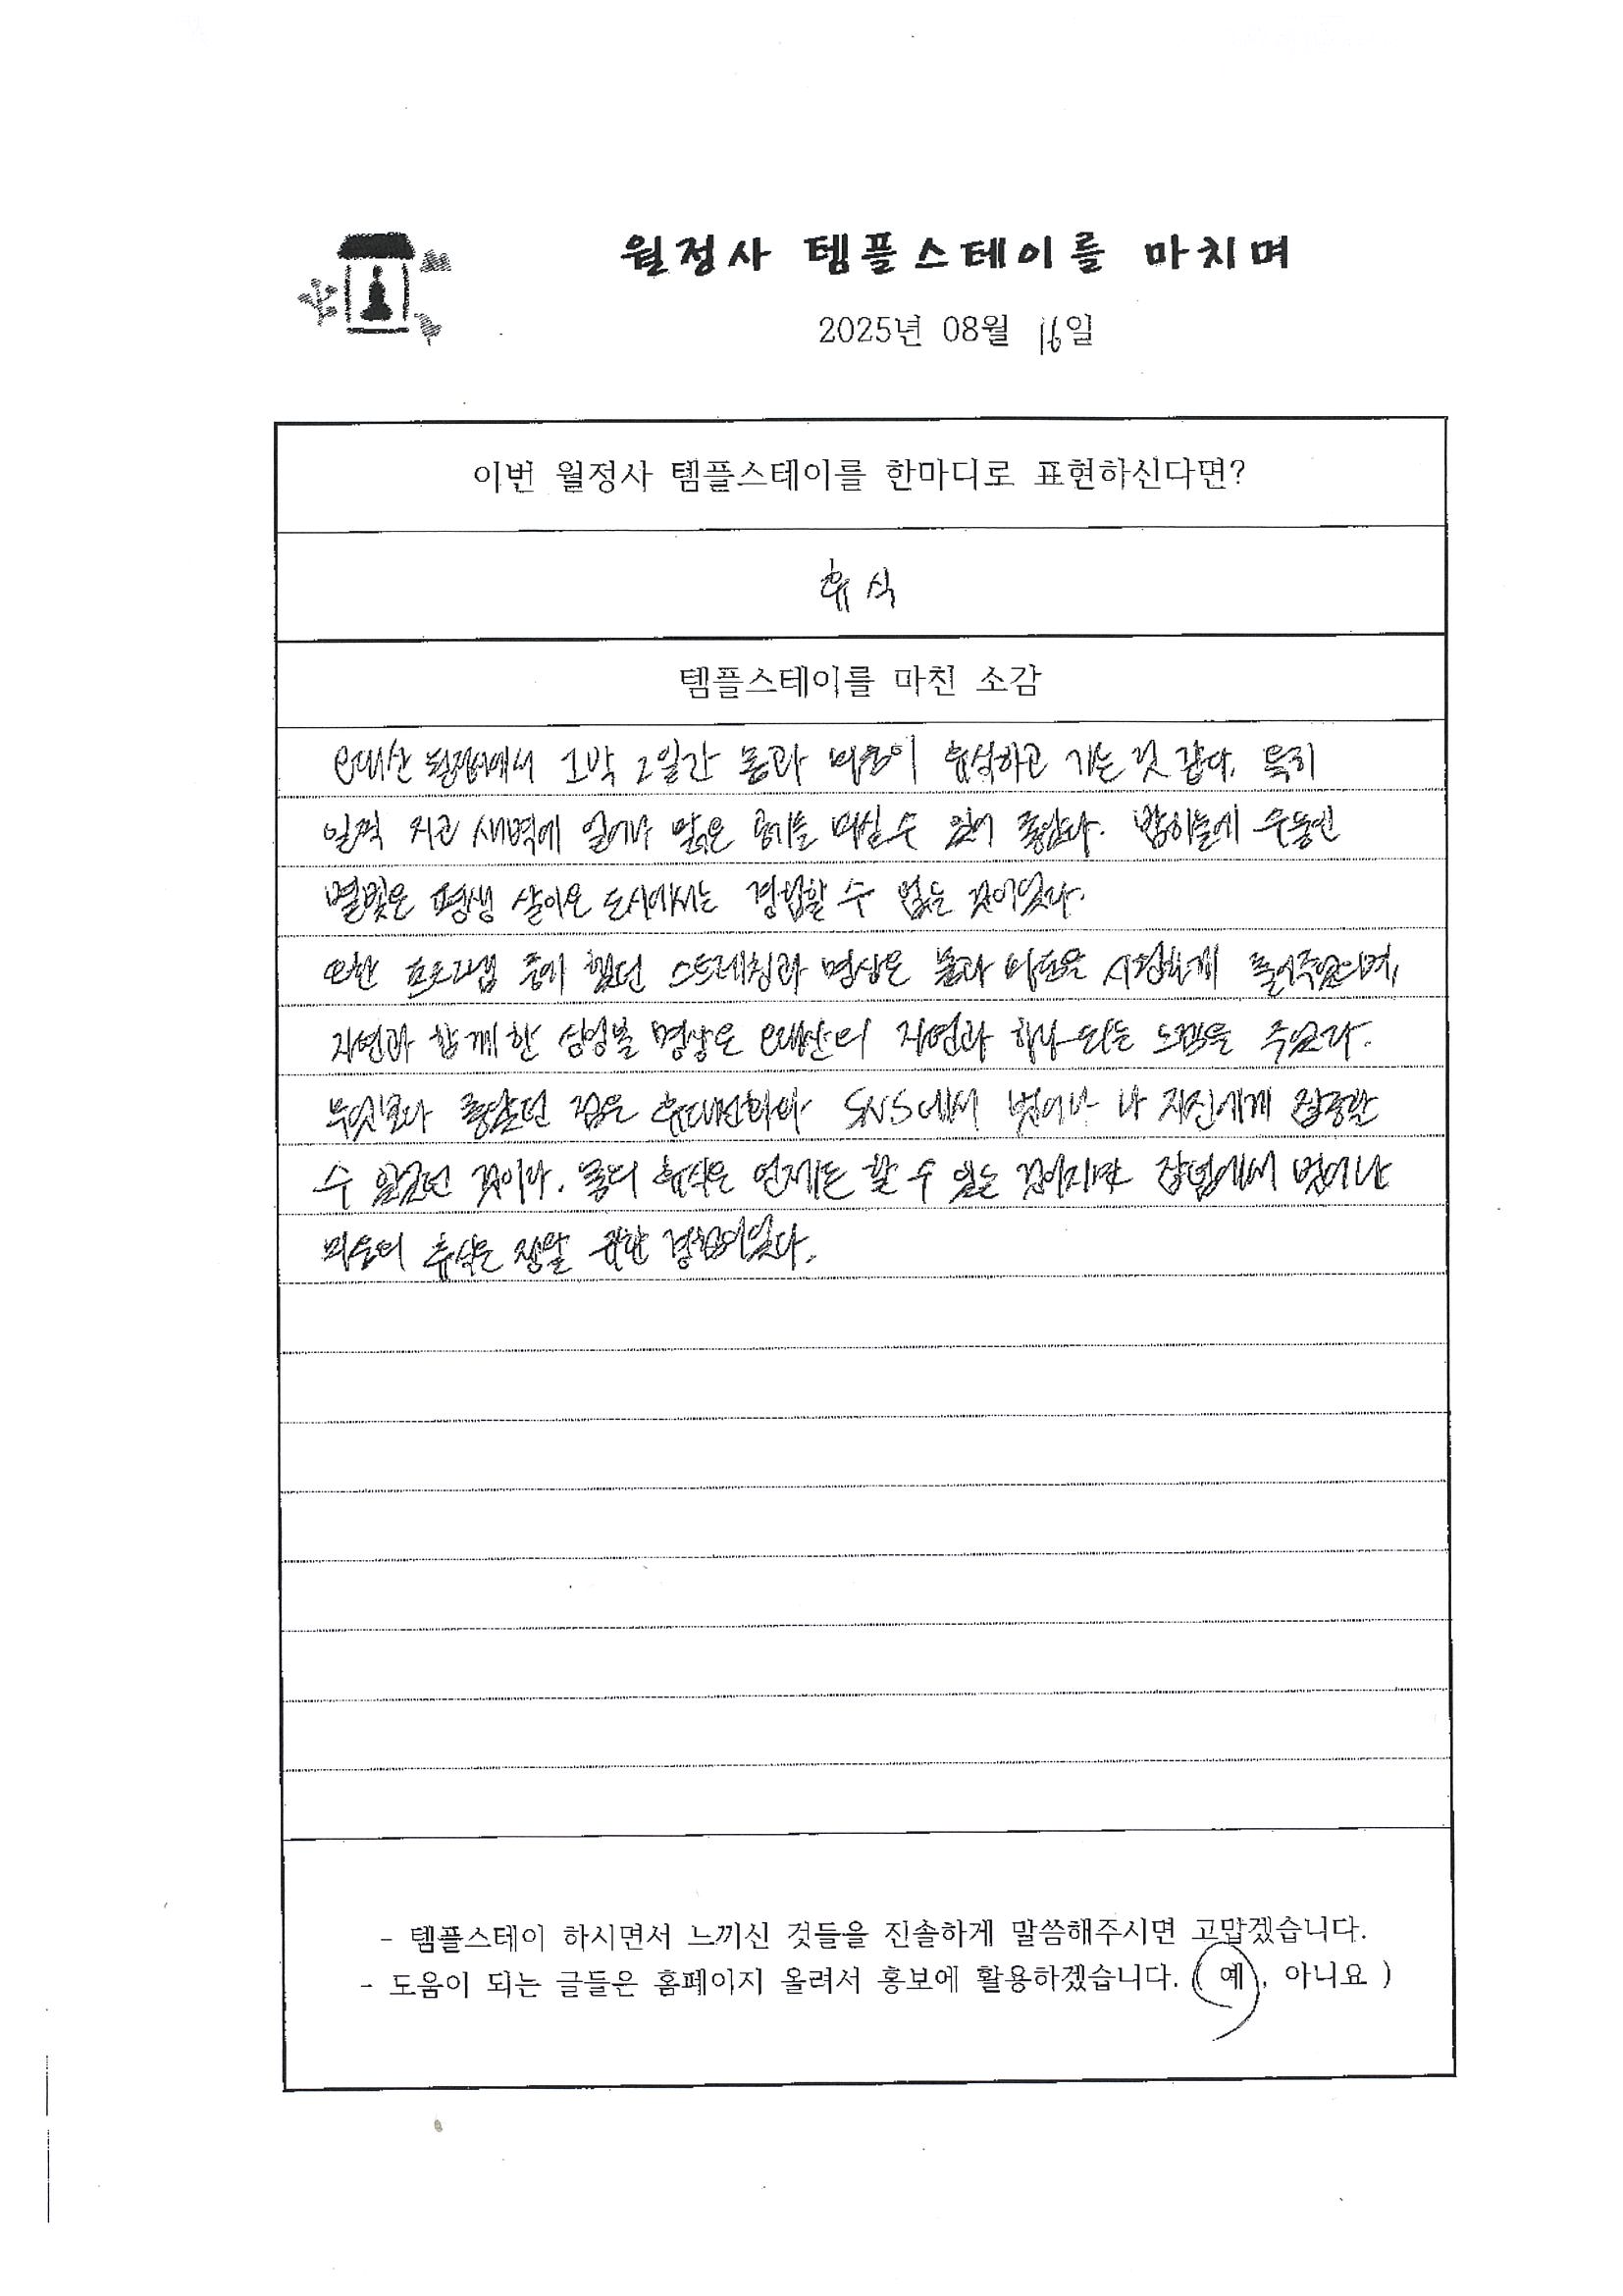 월정사 템플스테이를 마치며
2025년 08월 16일
이번 월정사 템플스테이를 한마디로 표현하신다면?
휴식
템플스테이를 마친 소감
오대산 월정사에서 1박 2일간 몸과 마음이 휴식하고 가는 것 같다. 특히
일찍 자고 새벽에 일어나 맑은 공기를 마실 수 있어 좋았다. 밤하늘에 수놓인
별빛은 평생 살아온 도시에서는 경험할 수 없는 것이었다.
또한 프로그램 중에 했던 스트레칭과 명상은 몸과 마음을 시원하게 풀어주었으며,
자연과 함께한 명상은 오대산의 자연과 하나 되는 느낌을 주었다.
무엇보다 좋았던 점은 휴대전화와 SNS에서 벗어나 나 자신에게 집중할
수 있었던 것이다. 몸의 휴식은 언제든 할 수 있는 것이지만 잡념에서 벗어난
마음의 휴식은 정말 귀한 경험이었다.
- 템플스테이 하시면서 느끼신 것들을 진솔하게 말씀해주시면 고맙겠습니다.
- 도움이 되는 글들은 홈페이지 올려서 홍보에 활용하겠습니다. ( 예 , 아니요 )